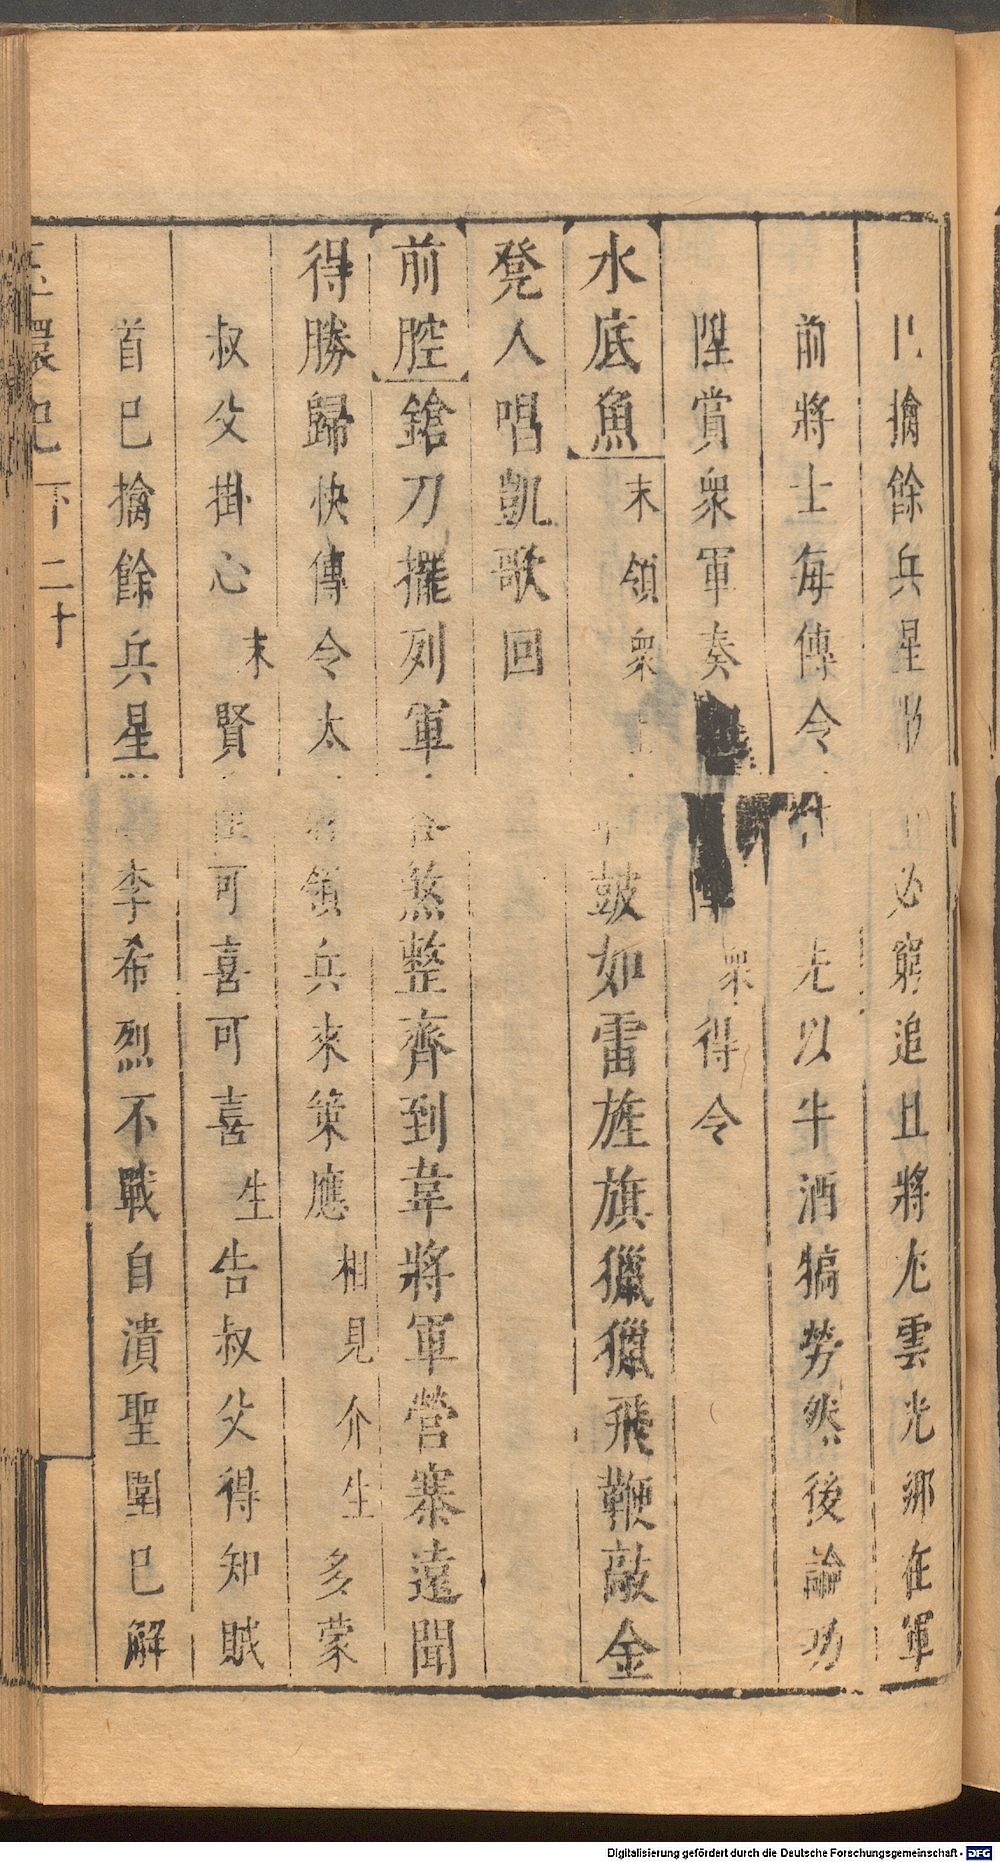 巳擒餘兵星散 必窮追且將尤雲光鄉在軍
前將士每傳令 先以牛酒犒勞然後論功
陞賞衆軍奏 衆得令
水底魚 末領衆上 皷如雷旌旗獵獵飛鞭敲金
凳人唱凱歌回
前腔 鎗刀擺列軍 容煞整齊到韋將軍營寨遠聞
得勝歸快傳令太 領兵來策應 相見介 生 多蒙
叔父掛心 末 賢 可喜可喜 生 告叔父得知賊
首巳擒餘兵星 李希烈不戰自潰聖圍巳解
玉環記 下 二十
Digitalisierung gefördert durch die Deutsche Forschungsgemeinschaft - DFG